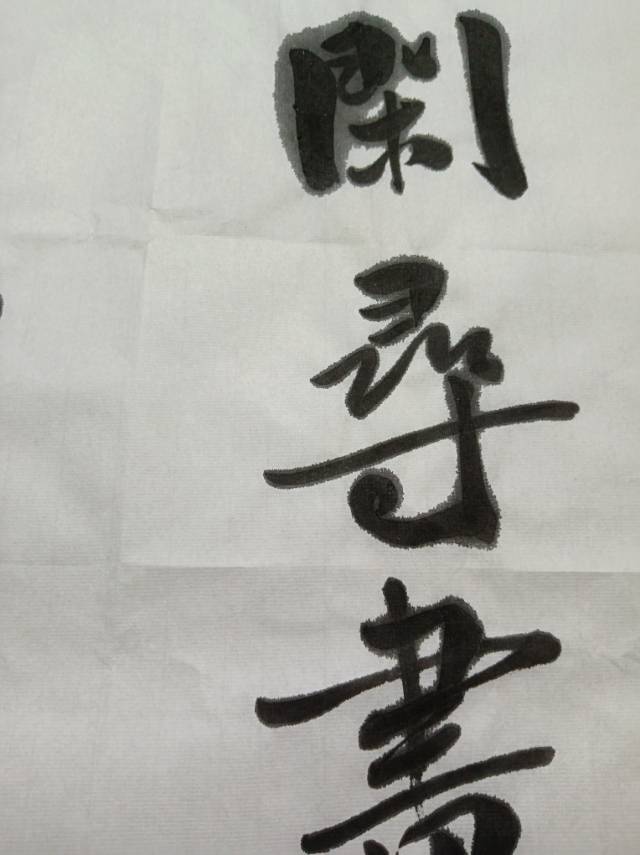 閑尋書